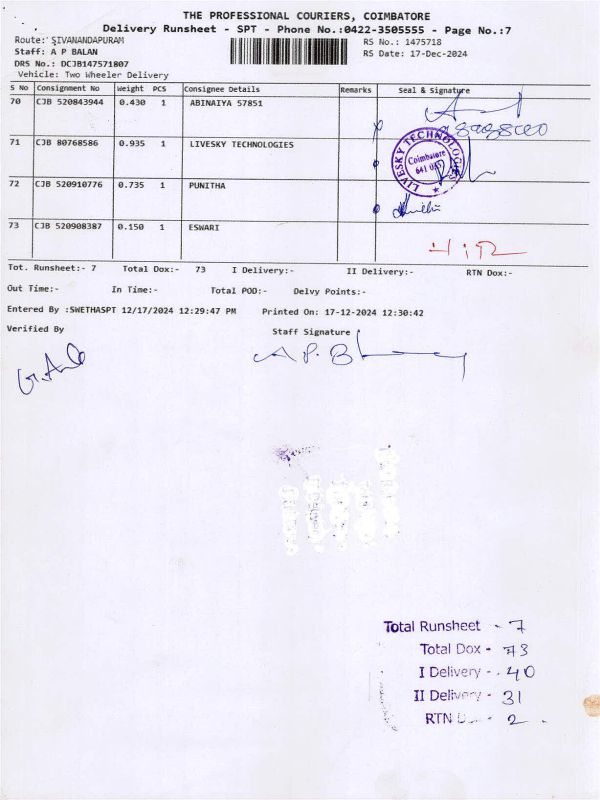 THE PROFESSIONAL COURIERS, COIMBATORE
Delivery Runsheet - SPT - Phone No.:0422-3505555 - Page No.:7
Route: SIVANANDAPURAM
RS No.: 1475718
Staff: A P BALAN
RS Date: 17-Dec-2024
DRS No.: DCJB147571807
Vehicle: Two Wheeler Delivery
S No Consignment No Weight PCS Consignee Details Remarks Seal & Signature
70 CJB 520843944 0.430 1 ABINAIYA 57851
71 CJB 80768586 0.935 1 LIVESKY TECHNOLOGIES
LIVESKY TECHNOLOGIES
Coimbatore
72 CJB 520910776 0.735 1 PUNITHA
73 CJB 520908387 0.150 1 ESWARI
Tot. Runsheet:- 7 Total Dox:- 73 I Delivery:- II Delivery:- RTN Dox:-
Out Time:- In Time:- Total POD:- Delvy Points:-
Entered By :SWETHASPT 12/17/2024 12:29:47 PM Printed On: 17-12-2024 12:30:42
Verified By Staff Signature
A P. B
Total Runsheet - 7
Total Dox - 73
I Delivery - 40
II Delivery - 31
RTN - 2